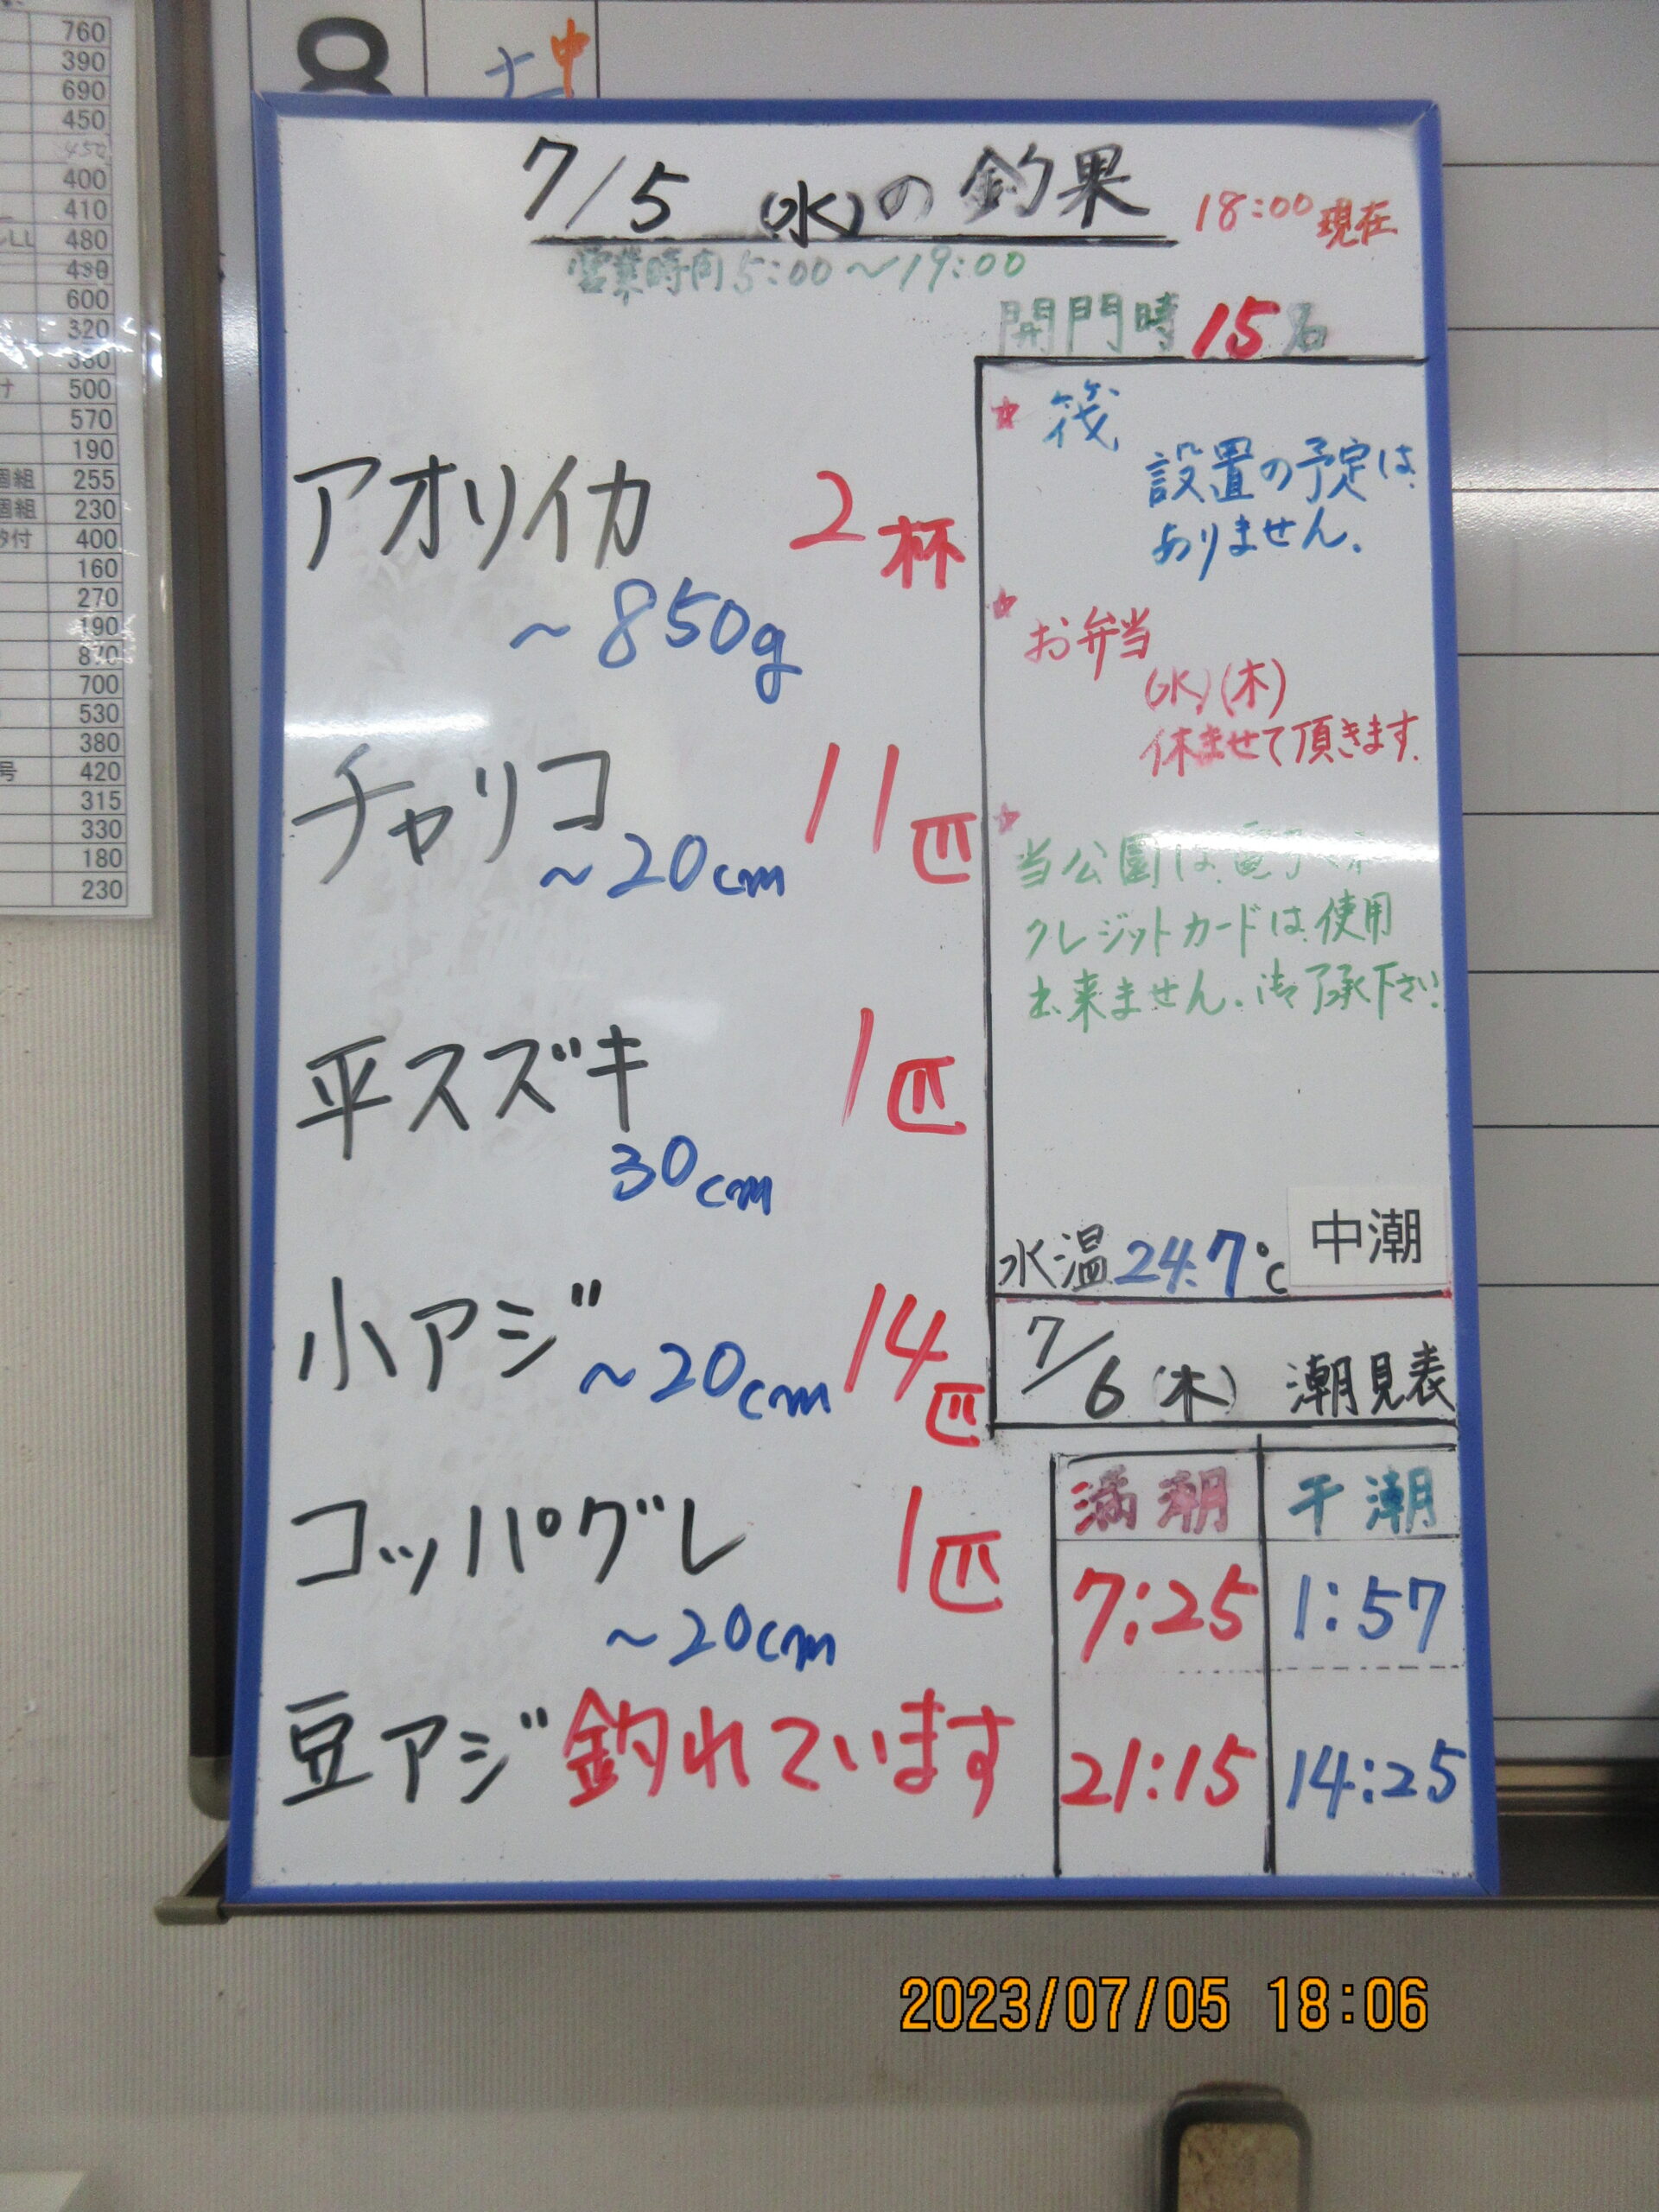 760
390
690
450
450
400
410
LL 480
430
600
320
330
500
570
190
個組 255
個組 230
付 400
160
270
190
870
700
530
380
号 420
315
330
180
230
中
7/5 (水)の釣果
18:00現在
営業時間5:00～19:00
開門時 15名
アオリイカ 2杯
～850g
チャリコ 11匹
～20cm
平スズキ 1匹
30cm
小アジ ～20cm 14匹
コッパグレ 1匹
～20cm
豆アジ 釣れています
★ 筏
設置の予定は
ありません.
★ お弁当
(水)(木)
休ませて頂きます.
★
当公園は電子
クレジットカードは使用
出来ません.御了承下さい
水温 24.7℃ 中潮
7/6 (木) 潮見表
満潮 干潮
7:25 1:57
21:15 14:25
2023/07/05 18:06